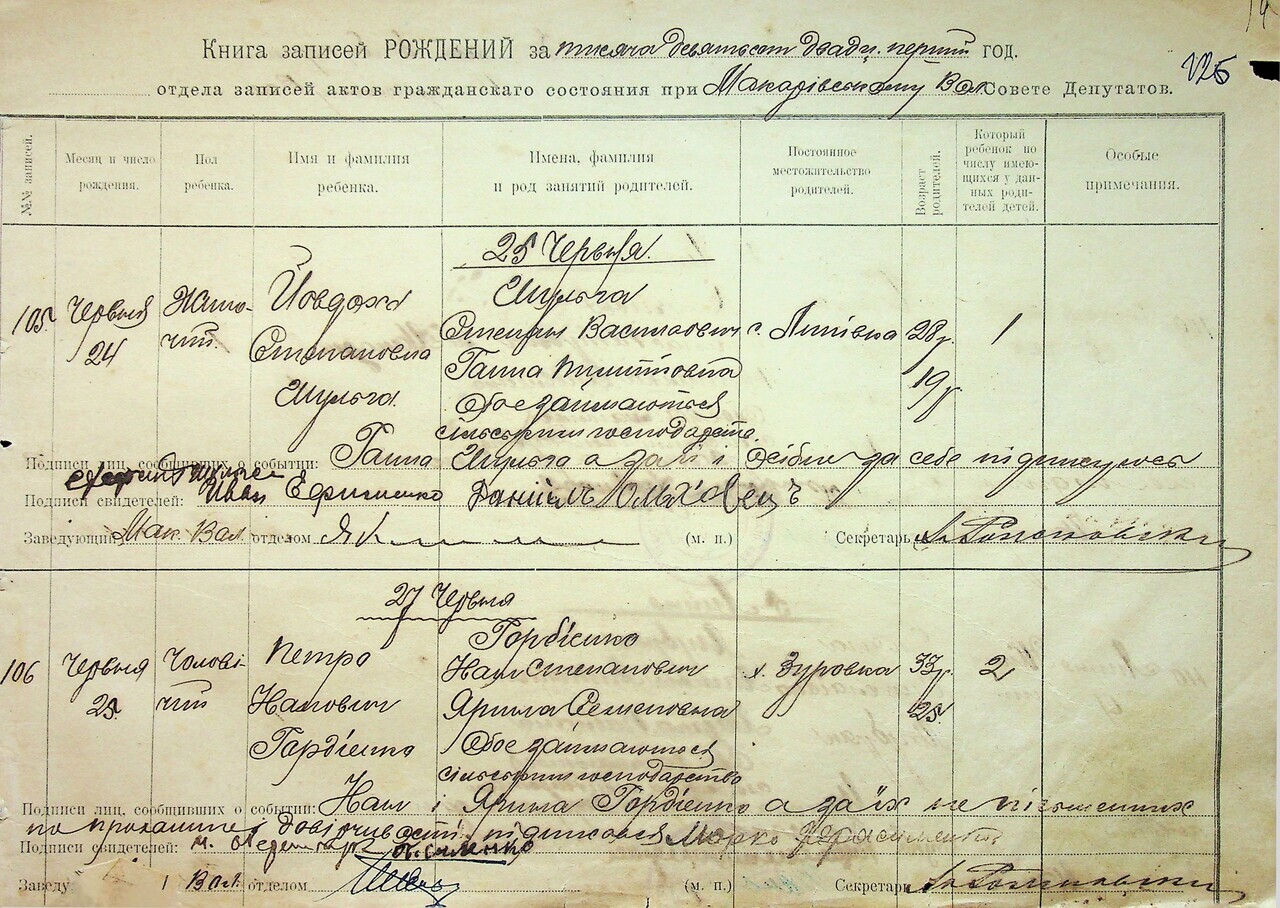 Книга записей РОЖДЕНИЙ за тисяча девятьсот двадц. перший год.
126
отдела записей актов гражданскаго состояния при Макарівському Вол. Совете Депутатов.
№№ записей.
Месяц и число рождения.
Пол ребенка.
Имя и фамилия ребенка.
Имена, фамилия и род занятий родителей.
Постоянное местожительство родителей.
Возраст родителей.
Который ребенок по числу имеющихся у данных родителей детей.
Особые примечания.
25 Червня.
105.
Червня
24
Жіно-
чий.
Йовдоха
Степановна
Шульга.
Шульга
Степан Васильович
Ганна
Обоє займаються
сільським господарств.
с. Липівка
28 р.
19 р
1
Подписи лиц, сообщивших о событии: Ганна Шульга а за її і особисто за себе підписуюсь
Подписи свидетелей: Иван Ефименко Данііль Ольховець
Заведующий Мак. Вол. отделом
(м. п.)
Секретарь
27 Червня
106
Червня
25.
Чолові-
чий
Петро
Гордієнко
Гордієнко
Степанович
Ярина Семеновна
Обоє займаються
сільським господарство
х. Зуровка
33 р.
25.
2
Подписи лиц, сообщивших о событии: і Ярина Гордієнко а за їх не письменних
підписався Марко
Подписи свидетелей:
Заведу Вол. отделом
(м. п.)
Секретарь